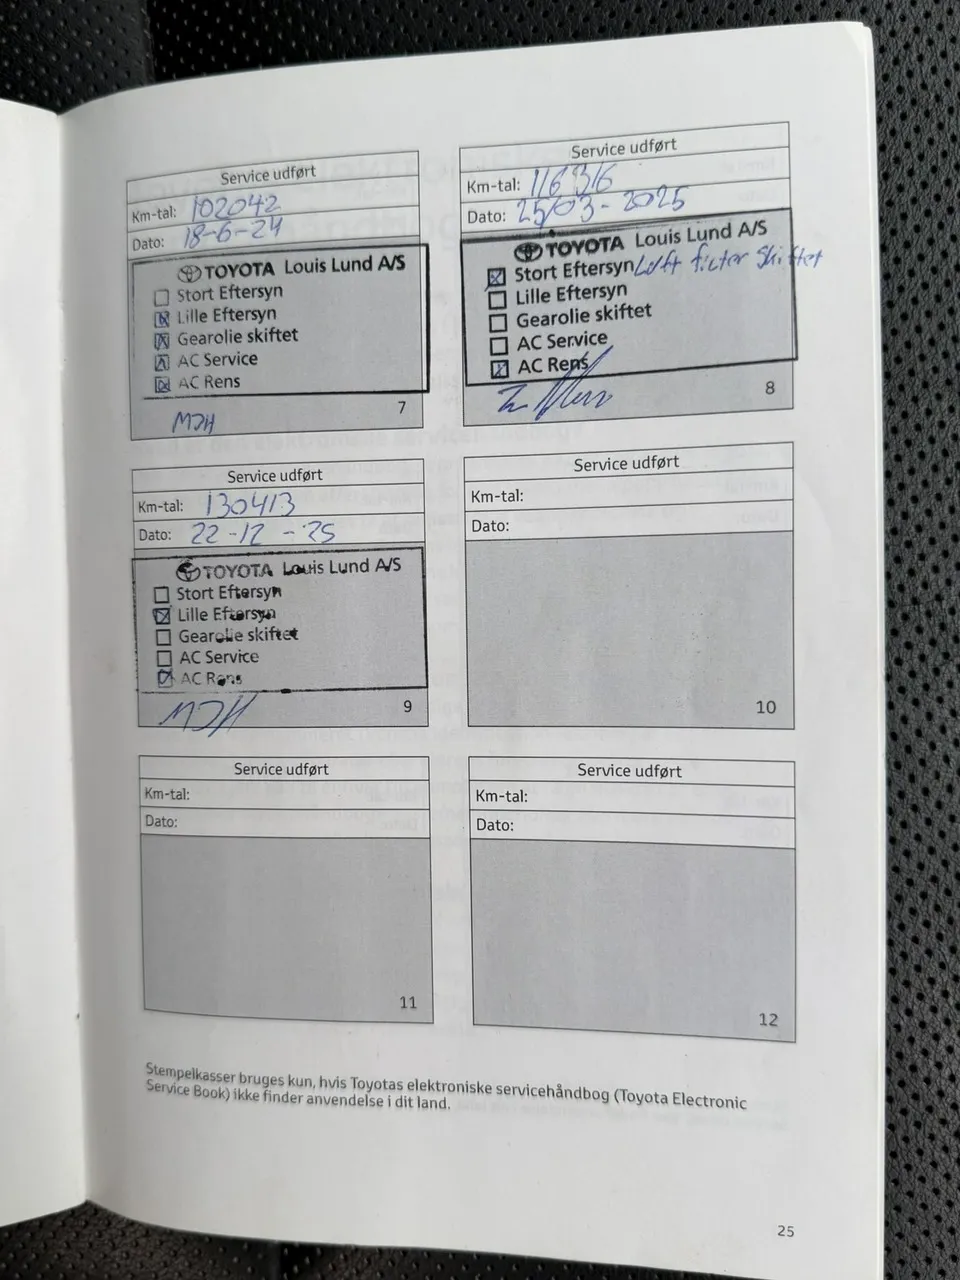 Service udført
Km-tal: 102042
Dato: 18-6-24
TOYOTA Louis Lund A/S
Stort Eftersyn
Lille Eftersyn
Gearolie skiftet
AC Service
AC Rens
MJH
7
Service udført
Km-tal: 116316
Dato: 25/03-2025
TOYOTA Louis Lund A/S
Stort Eftersyn Luft filter skiftet
Lille Eftersyn
Gearolie skiftet
AC Service
AC Rens
8
Service udført
Km-tal: 130413
Dato: 22-12-25
TOYOTA Louis Lund A/S
Stort Eftersyn
Lille Eftersyn
Gearolie skiftet
AC Service
AC Rens
MJH
9
Service udført
Km-tal:
Dato:
10
Service udført
Km-tal:
Dato:
11
Service udført
Km-tal:
Dato:
12
Stempelkasser bruges kun, hvis Toyotas elektroniske servicehåndbog (Toyota Electronic
Service Book) ikke finder anvendelse i dit land.
25